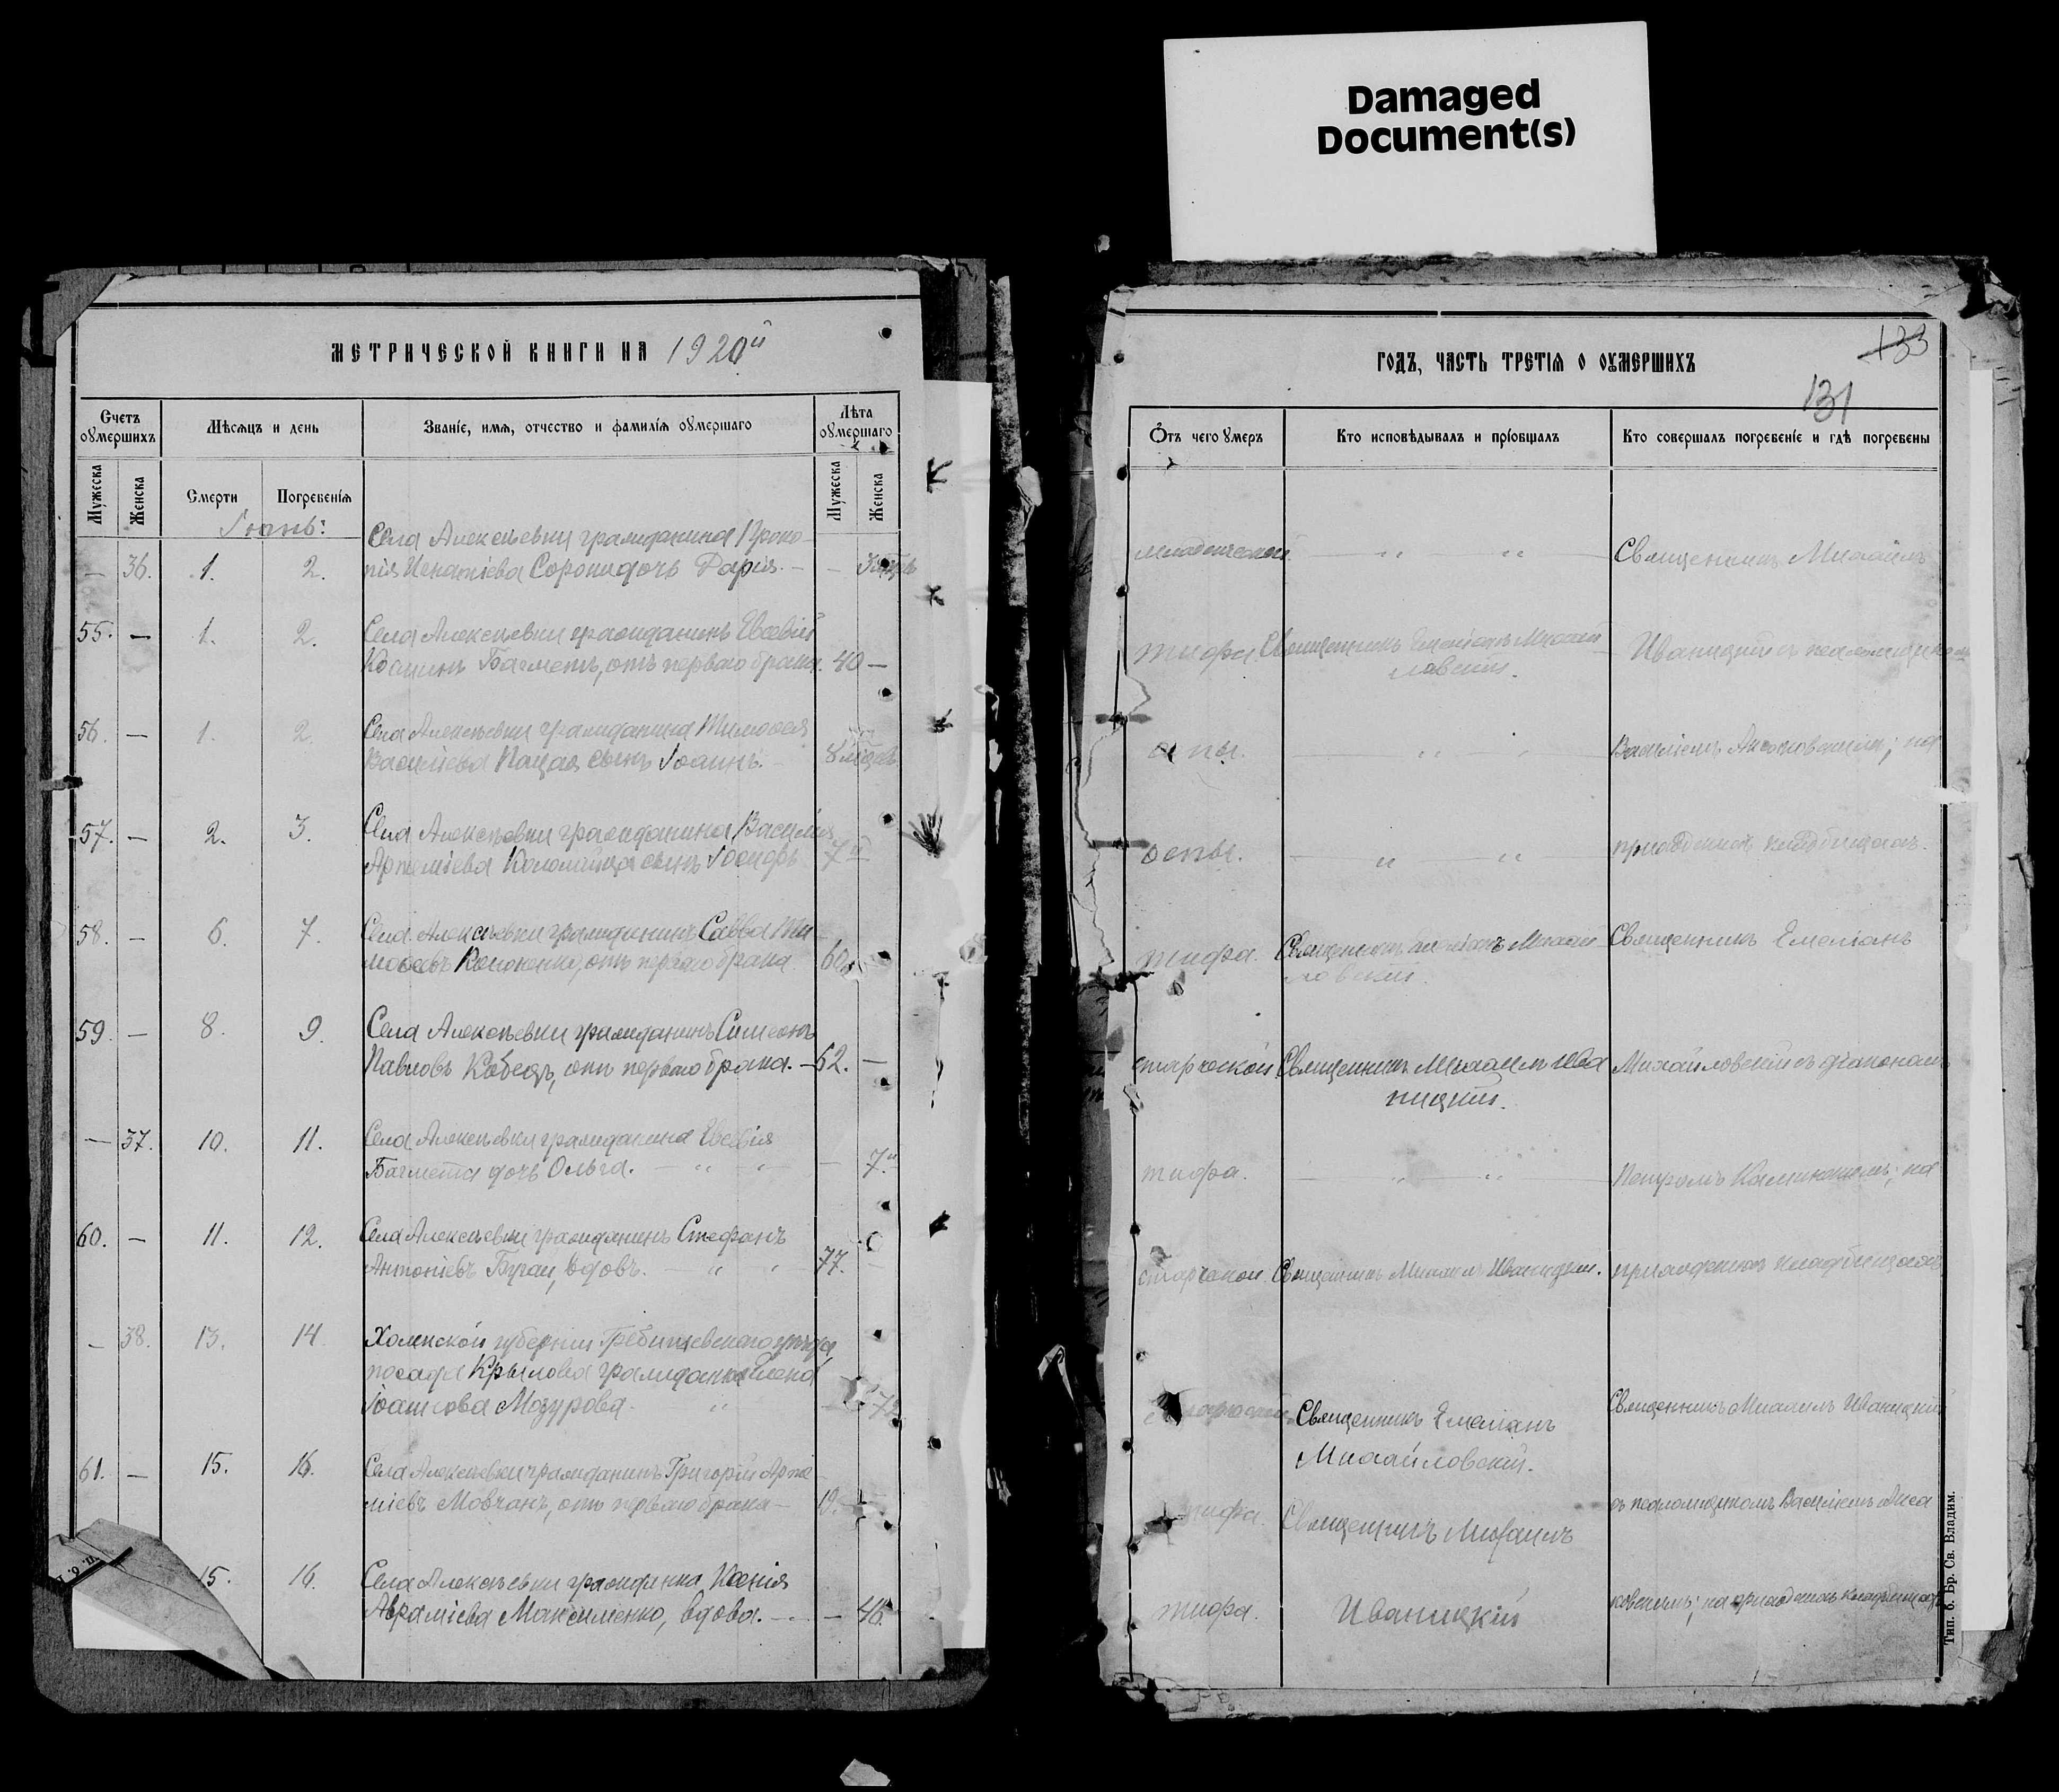 Damaged
Document(s)
МЕТРИЧЕСКОЙ КНИГИ НА 1920й
Счетъ оумершихъ
Мѣсяцъ и день
Званіе, имя, отчество и фамилія оумершаго
Лѣта оумершаго
Мужеска
Женска
Смерти
Погребенія
Мужеска
Женска
Іюнь:
Села Алексѣевки гражданина Проко-
— 36. 1. 2. пія Игнатіева Сороки дочь Дарія. — —
55. — 1. 2. Села Алексѣевки гражданинъ Евсевій
Багметъ, отъ перваго брака. 40 —
56. — 1. 2. Села Алексѣевки гражданина Тимоѳея
Василіева Пацая сынъ Іоаннъ. 8 мѣсяц.
57. — 2. 3. Села Алексѣевки гражданина Василія
Артеміева Коломійца сынъ Іосифъ 7
58. — 6. 7. Села Алексѣевки гражданинъ Савва Ти-
моѳеевъ Кононенко, отъ перваго брака. 60
59. — 8. 9. Села Алексѣевки гражданинъ Симеонъ
Павловъ Кобецъ, отъ перваго брака. — 62. —
— 37. 10. 11. Села Алексѣевки гражданина Евсевія
Багмета дочь Ольга. — „ — „ — 7.
60. — 11. 12. Села Алексѣевки гражданинъ Стефанъ
Антоніевъ Бугай, вдовъ. — „ „ 77. —
— 38. 13. 14. Холмской губерніи Грубешевскаго уѣзда
посада Крылова гражданка Елена
Іоаннова Мозурова. „ 72
61. — 15. 16. Села Алексѣевки гражданинъ Григорій Арте-
міевъ Мовчанъ, отъ перваго брака — 19. —
15. 16. Села Алексѣевки гражданка Ксенія
Авраміева Максименко, вдова. — — 46.
133
131
ГОДЪ, ЧАСТЬ ТРЕТІЯ О ОУМЕРШИХЪ
Отъ чего умеръ
Кто исповѣдывалъ и пріобщалъ
Кто совершалъ погребеніе и гдѣ погребены
младенческой — „ „ Священникъ Михаилъ
тифа. Священникъ Емеліанъ Михай-
ловскій.
Иваницкій съ псаломщикомъ
оспы. — „ „ Василіемъ ; на
оспы. — „ — „ — приходскомъ кладбищахъ.
тифа. Священникъ Емеліанъ Михай-
ловскій.
Священникъ Емеліанъ
старческой Священникъ Михаилъ Ива-
ницкій.
Михайловскій съ діакономъ
тифа. — „ „ — Петромъ ; на
старческой. Священникъ Михаилъ Иваницкій. приходскомъ кладбищахъ
старческой Священникъ Емеліанъ
Михайловскій.
Священникъ Михаилъ Иваницкій
тифа. Священникъ Михаилъ
съ псаломщикомъ Василіемъ
тифа. Иваницкій
на приходскомъ кладбищахъ
Тип. б. Бр. Св. Владим.